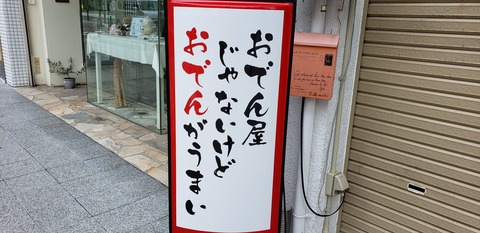 おでん屋
じゃないけど
おでんがうまい